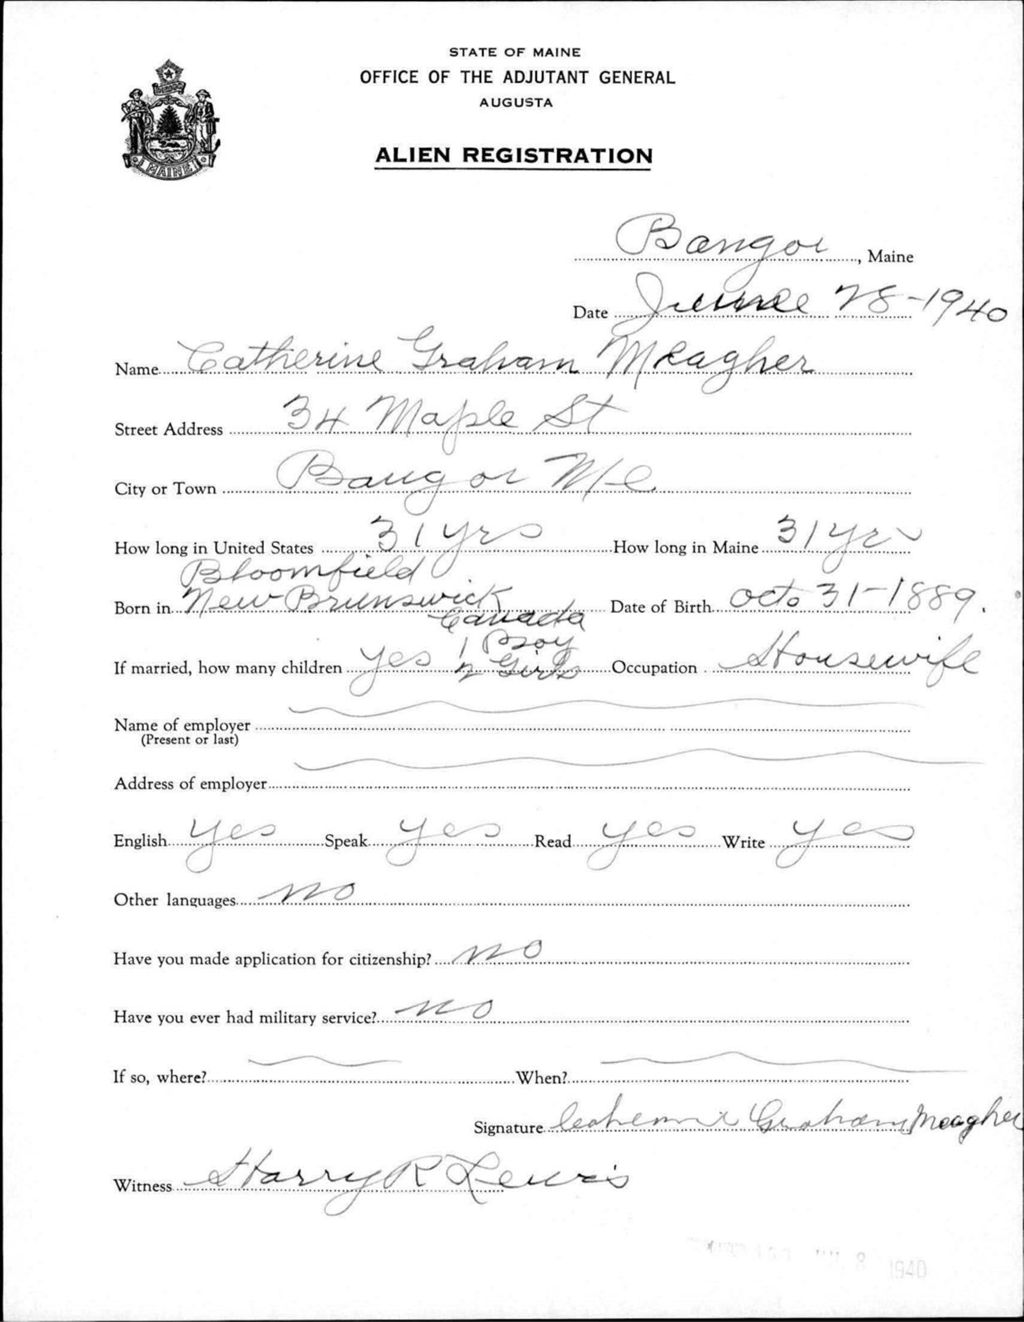 STATE OF MAINE
OFFICE OF THE ADJUTANT GENERAL
AUGUSTA
ALIEN REGISTRATION
MAINE
Bangor, Maine
Date June 28-1940
Name Catherine Graham Meagher
Street Address 34 Maple St
City or Town Bangor Me
How long in United States 31 yrs How long in Maine 31 yrs
Bloomfield
Born in New Brunswick Date of Birth Oct. 31-1889.
Canada
1 Boy
If married, how many children yes 2 Girls Occupation Housewife
Name of employer
(Present or last)
Address of employer
English yes Speak yes Read yes Write yes
Other languages no
Have you made application for citizenship? no
Have you ever had military service? no
If so, where? When?
Signature Catherine Graham Meagher
Witness Harry R Lewis
8 1940